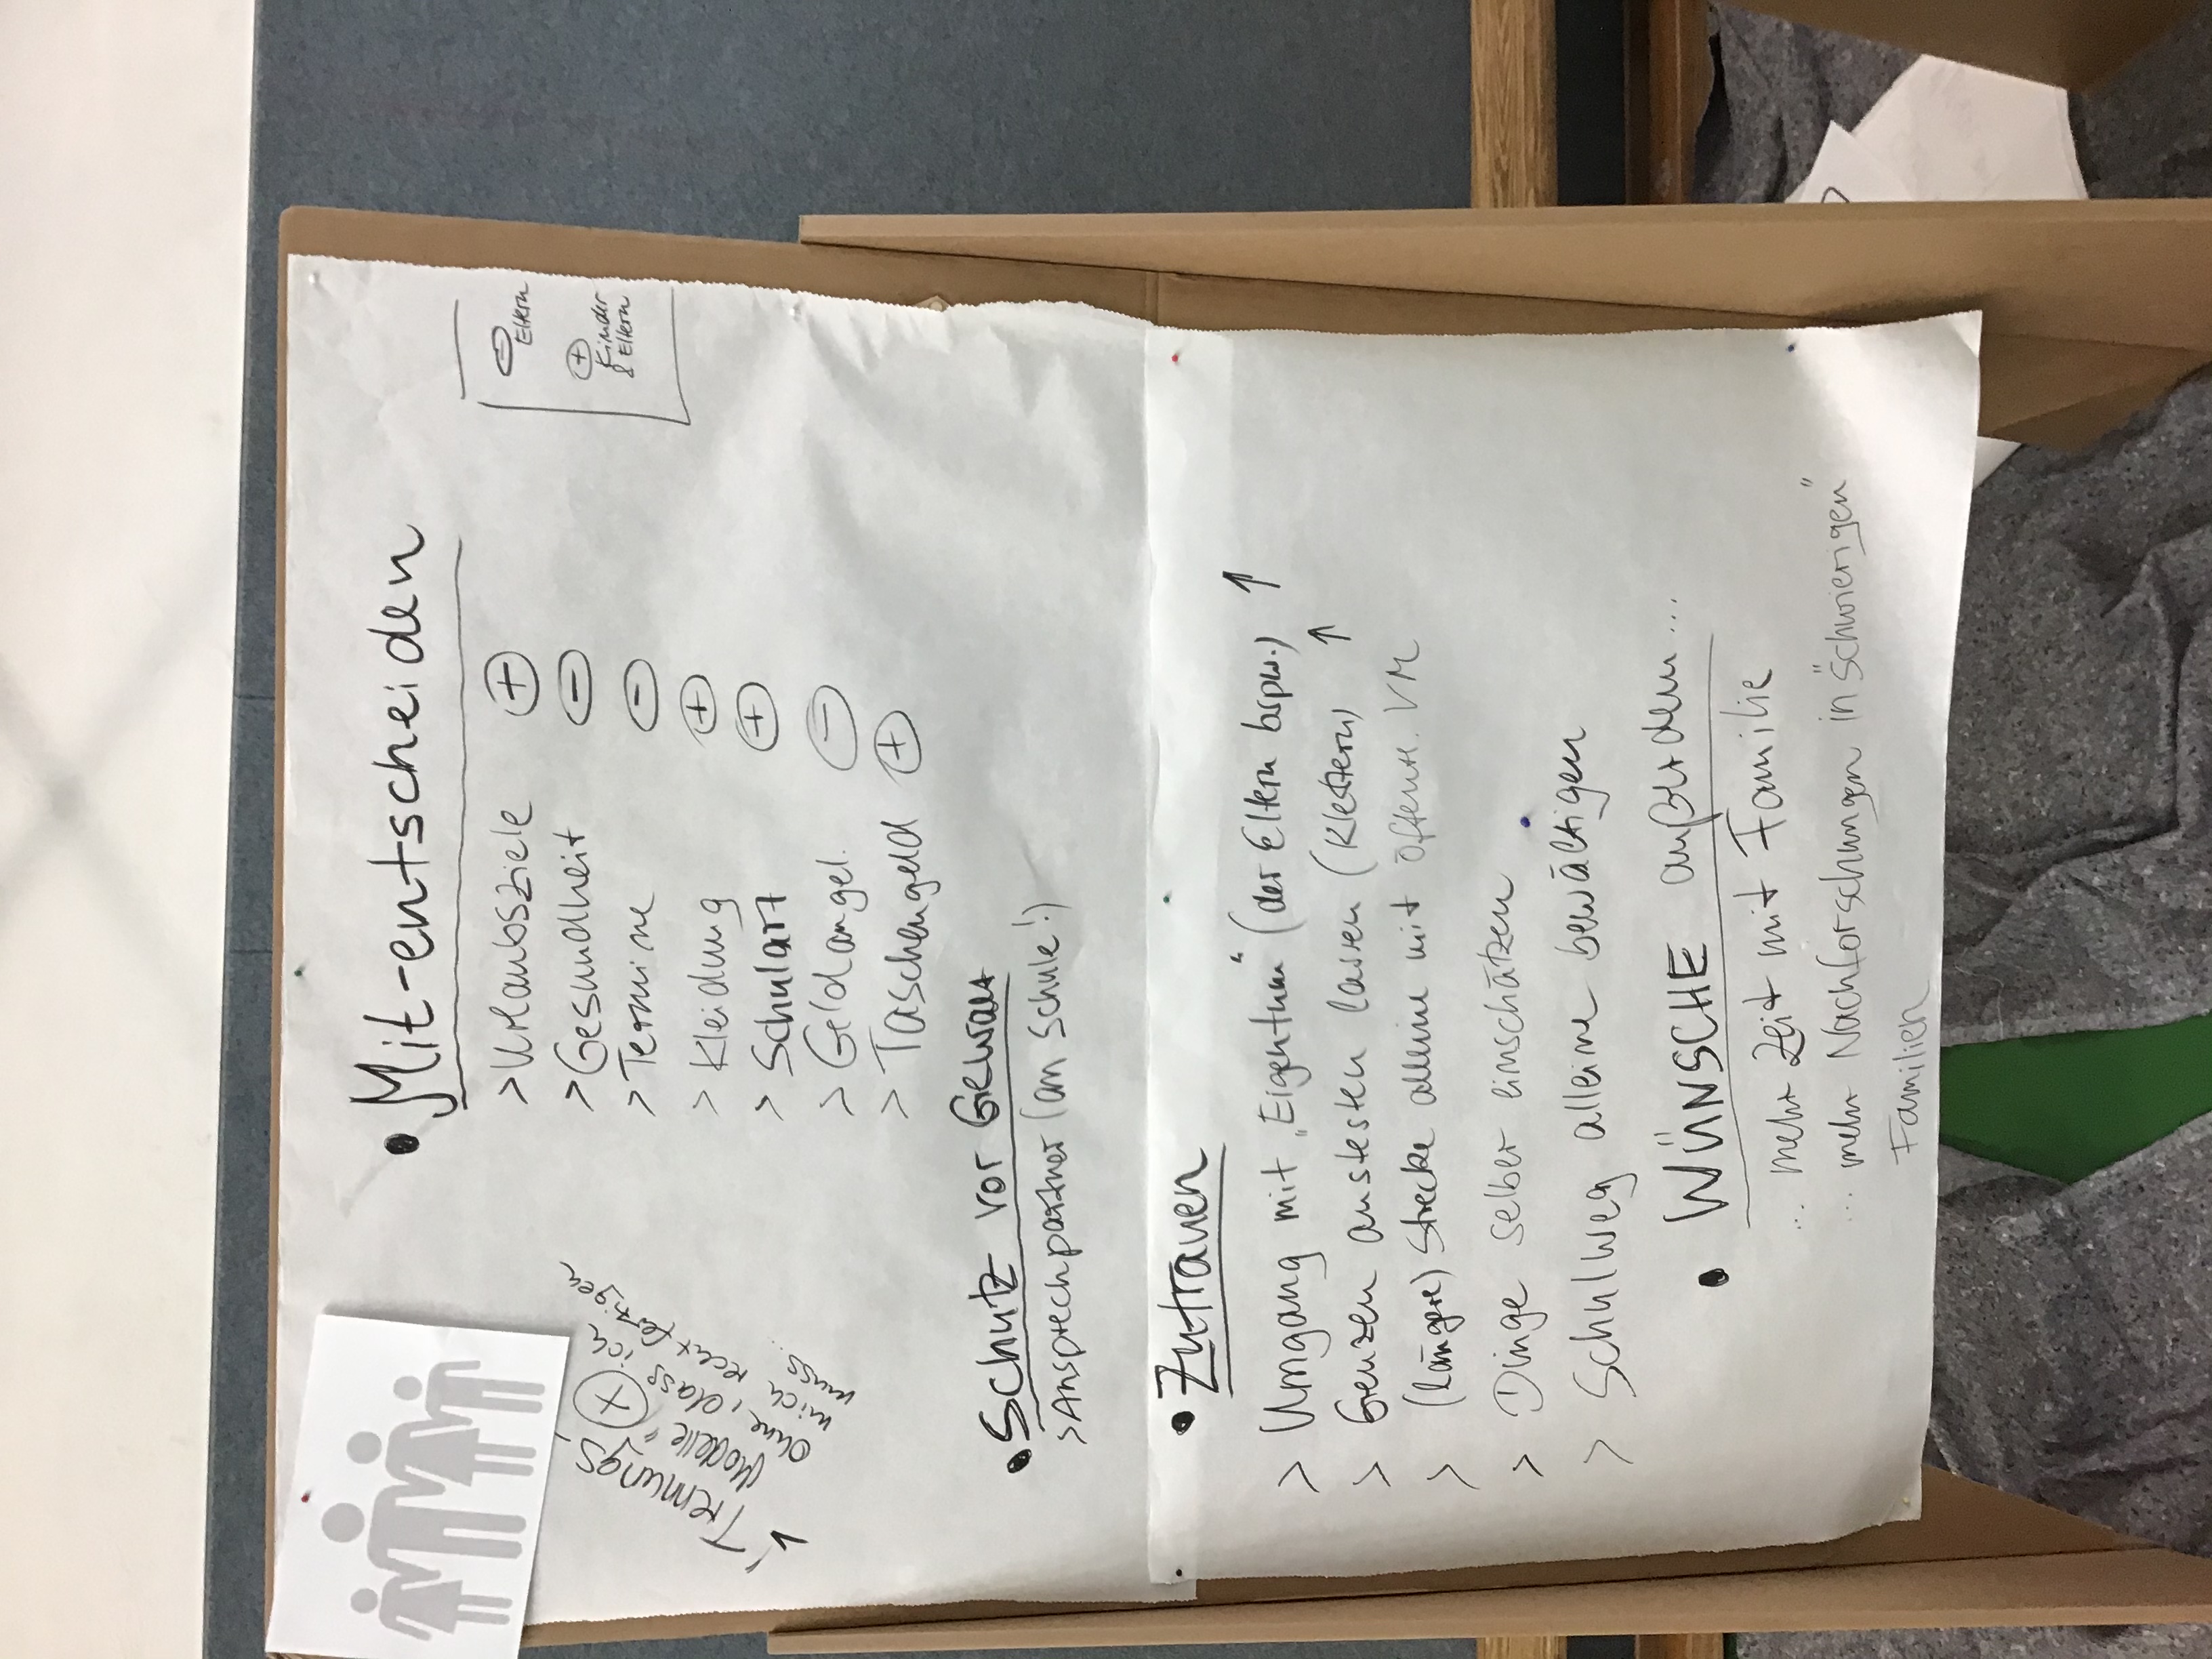 • Mit-entscheiden
> Urlaubsziele ⊕
> Gesundheit ⊖
> Termine ⊖
> Kleidung ⊕
> Schulart ⊕
> Geldangel. ⊖
> Taschengeld ⊕
⊖
Eltern
⊕
Kinder
& Eltern
> "Trennungs ⊕
Modelle", dass ich
ohne
mich recht fertigen
muss..
• Schutz vor Gewalt
> Ansprechpartner (an Schule!)
• Zutrauen
> Umgang mit „Eigentum“ (der Eltern bspw.) ↑
> Grenzen austesten lassen (Klettern) ↑
> (längere) Strecke alleine mit öffentl. VM
> Dinge selber einschätzen
> Schulweg alleine bewältigen
• WÜNSCHE außerdem...
... mehr Zeit mit Familie
... mehr Nachforschungen in "schwierigen"
Familien